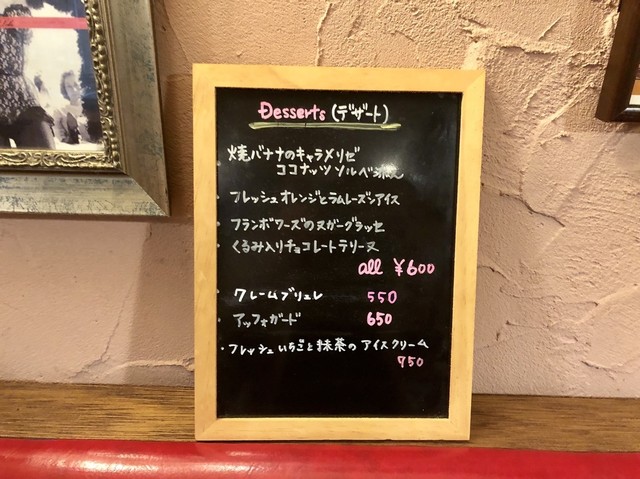 Desserts (デザート)
焼バナナのキャラメリゼ
ココナッツソルベ添え
・フレッシュオレンジとラムレーズンアイス
・フランボワーズのヌガーグラッセ
・くるみ入りチョコレートテリーヌ
all ¥600
・クレームブリュレ 550
・アッフォガード 650
・フレッシュいちごと抹茶のアイスクリーム
750